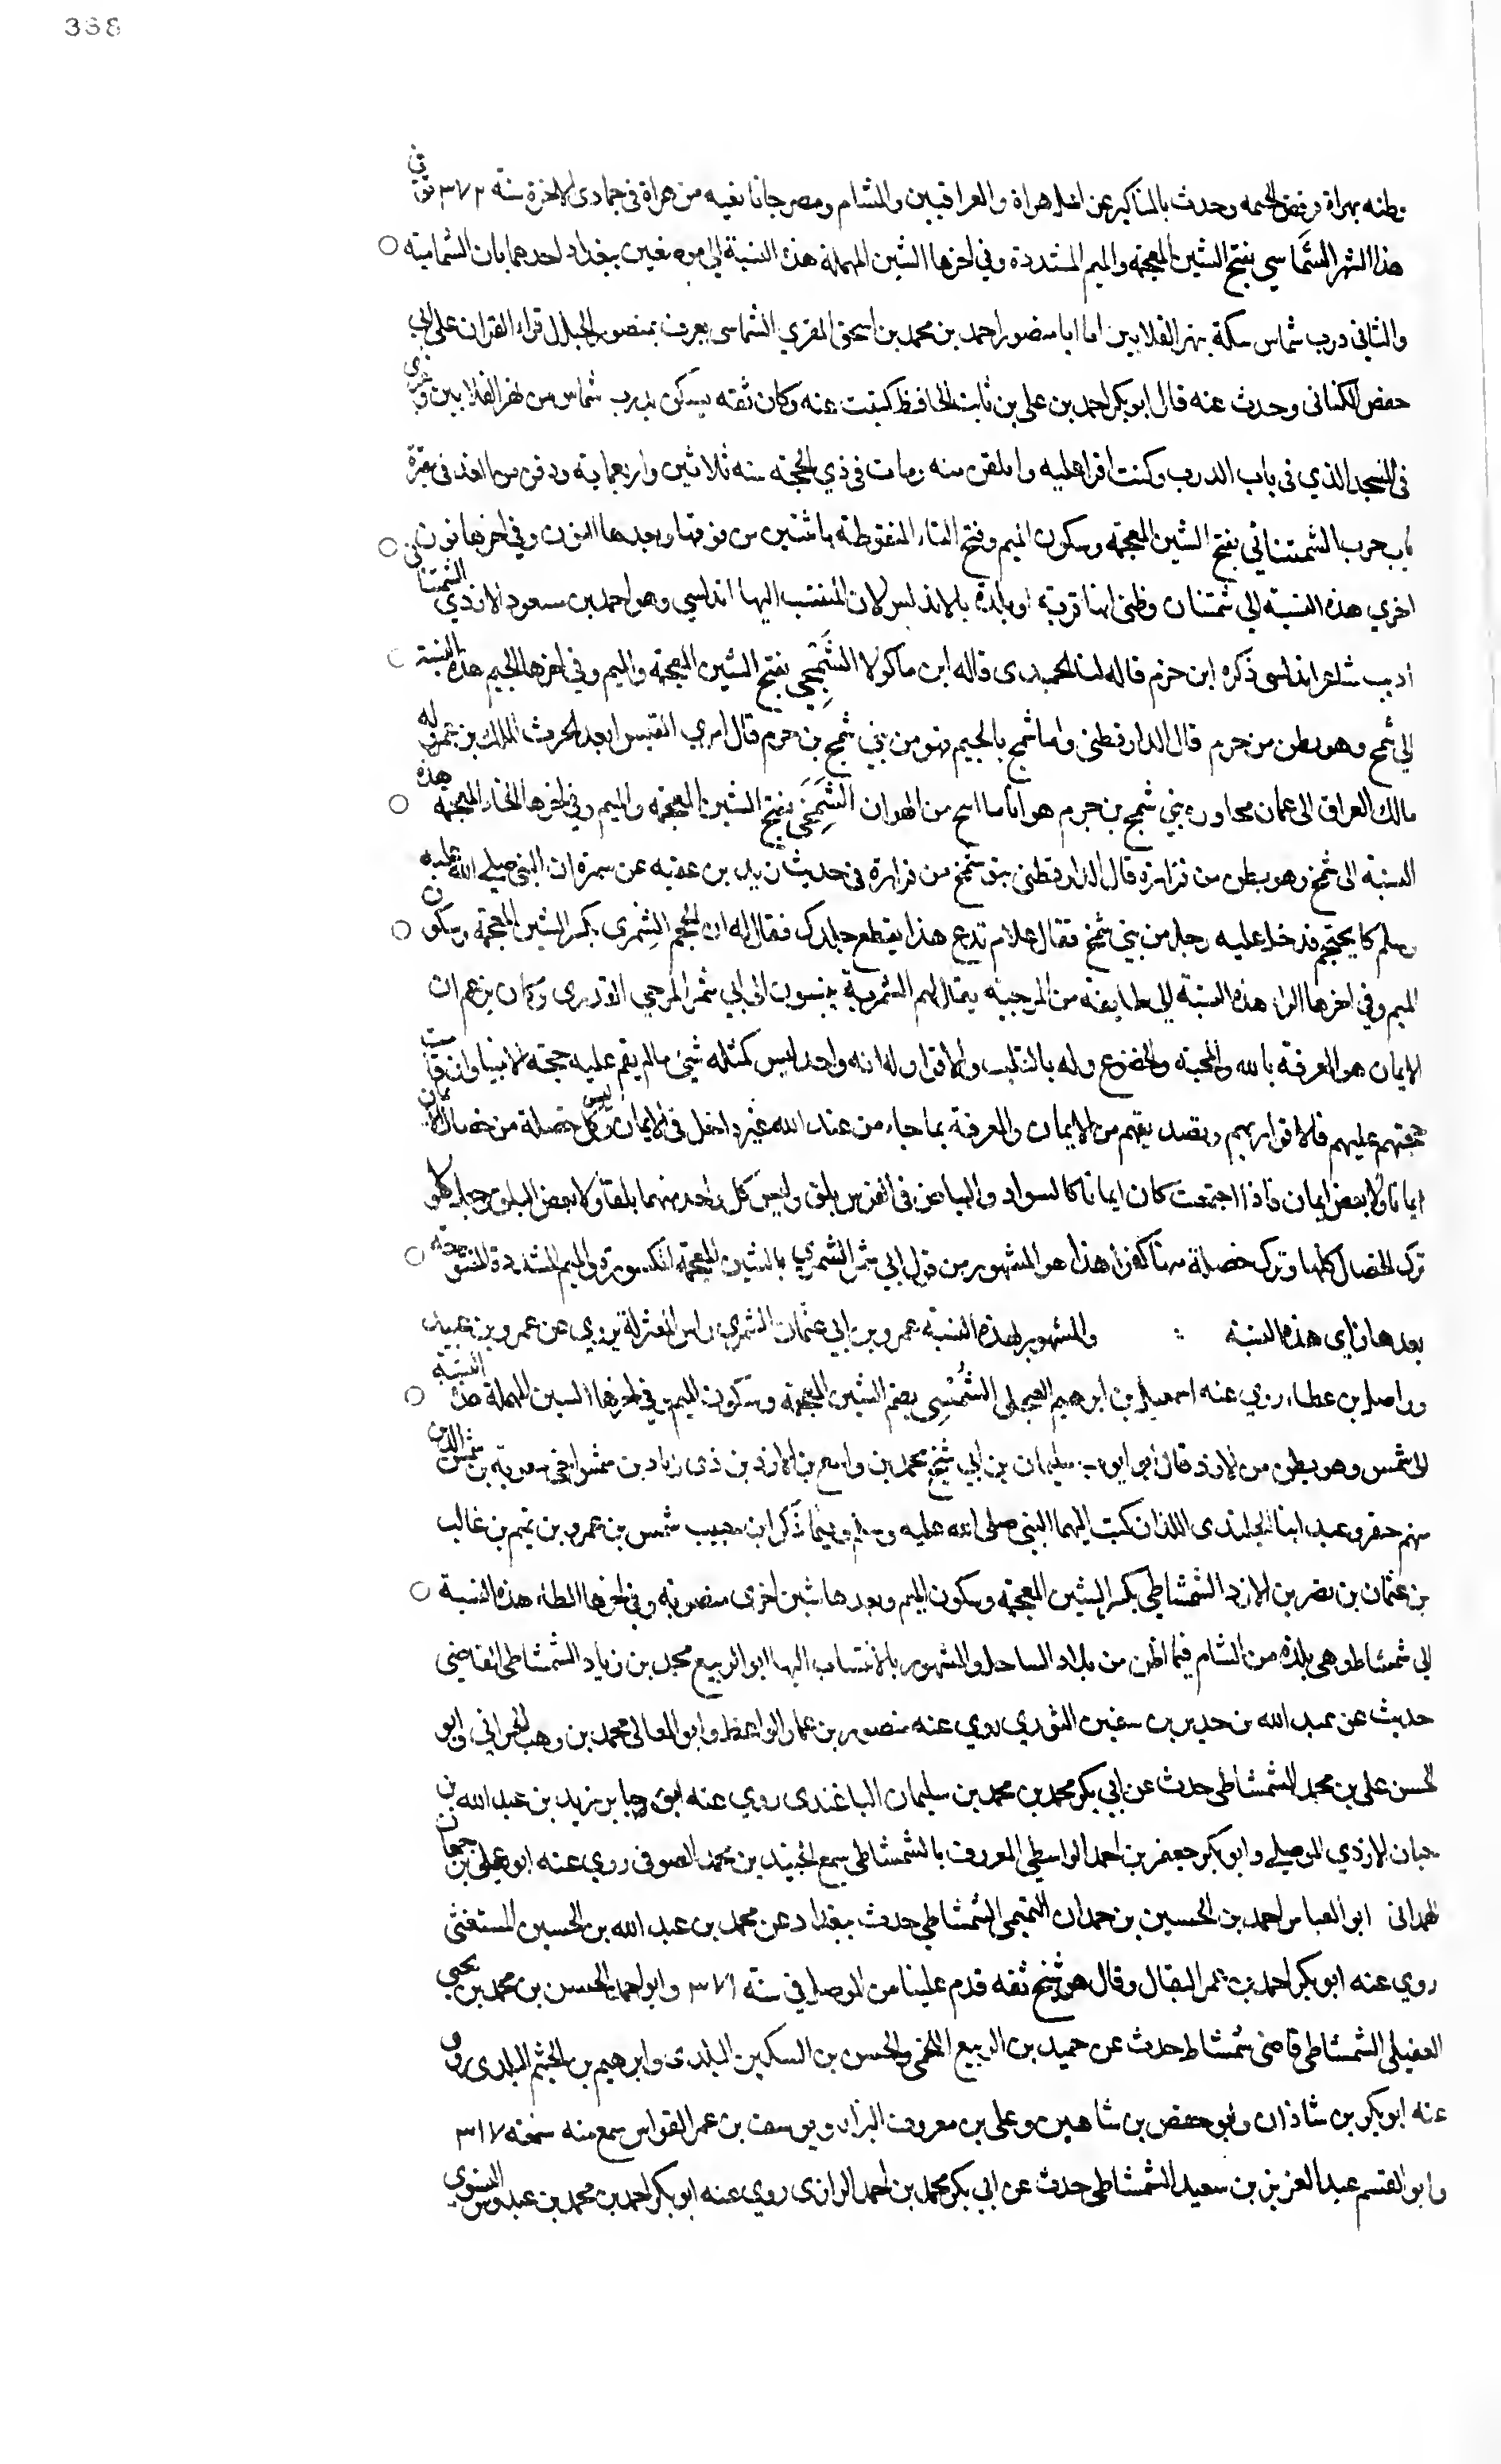 338
وطنه بهراة فرفض الحمه وحدث بالمناكير عن اهل هراة والعراقيين والشام ومصر جانا نعيه من هراة في جمادى الاخرة سنة ٣٧٢ توفي في
هذا الشهر الشَّمَّاسي بفتح الشين المعجمة والميم المشددة وفي اخرها السين المهملة هذه النسبة الى موضعين ببغداد احدهما باب الشماسية
والثاني درب شماس سكة بنهر القلايين اما ابا منصور احمد بن محمد بن اسحق المقري الشماسي يعرف بمنصور الحبال قراء القران على ابي
حفص الكناني وحدث عنه قال ابو بكر احمد بن علي بن ثابت الحافظ كتبت عنه وكان ثقه يسكن بدرب شماس من نهر القلايين ويقرى
في المسجد الذي في باب الدرب وكنت اقرا عليه واتلقن منه ومات في ذي الحجة سنه ثلاثين واربعماية ودفن من الغد في مقبرة
باب حرب الشمتناني بفتح الشين المعجمة وسكون الميم وفتح التاء المنقوطة باثنتين من فوقها وبعدها النون وفي اخرها نون
اخري هذه النسبة الى شمتنان وظني انها قرية او بلدة بالاندلس لان المنتسب اليها اندلسي وهو احمد بن مسعود الازدي الشمتناني
اديب شاعر اندلسي ذكره ابن حزم قاله لنا الحميدى قاله ابن ماكولا الشَّمَجِي بفتح الشين المعجمة والميم وفي اخرها الجيم هذه النسبة
الى شمج وهو بطن من جرم قال الدارقطنى واما شمج بالجيم فهو من بني شمج بن جرم قال امري القيس ابعد الحرث الملك بن عمرو له
مالك العراق الى عمان مجاورة بني شمج بن جرم هوانا ما اتيح من الهوان الشَّمَخِي بفتح الشين المعجمة والميم وفي اخرها الخاء المعجمة هذه
النسبة الى شمخ وهو بطن من فزارة قال الدارقطنى بنو شمخ من فزارة في حديث زيد بن عقبه عن سمرة ان النبي صلى الله عليه
وسلم كان يحتجم فدخل عليه رجل من بني شمخ فقال علام تدع هذا يقطع جلدك فقال له ان الحجم الشِمري بكسر الشين المعجمة وسكون
الميم وفي اخرها الراء هذه النسبة الى طايفة من المرجية يقال لهم الشمرية ينسبون الى ابي شمر المرجي القدري وكان يزعم ان
الايمان هو المعرفة بالله والمحبة والخضوع له بالقلب والاقرار له انه واحد ليس كمثله شئ ما لم يقم عليه حجة الانبيا وان قامت
حجتهم عليهم فالاقرار بهم وتصديقهم من الايمان والمعرفة بما جاء من عند الله غير داخل في الايمان وليس كل خصلة من خصال الايمان
ايمانا ولا بعض ايمان فاذا اجتمعت كان ايمانا كالسواد والبياض في الفرس بلق وليس كل واحد منهما بلقا ولا بعض البلق وجعل
ترك الخصال كلها وترك خصلة منها كفرا هذا هو المشهور من قول ابي شمر الشمزي بالشين المعجمة المكسورة والميم المشددة المفتوحة
بعدها زاي هذه النسبة : والمشهور بهذه النسبة عمرو بن ابي عثمان الشمزي راس المعتزلة يروي عن عمرو بن عبيد
وواصل بن عطاء روي عنه اسمعيل بن ابرهيم العجلي الشُّمْسِي بضم الشين المعجمة وسكون الميم وفي اخرها السين المهملة هذه النسبة
الى شمس وهو بطن من الازد قال ابو ايوب سليمان بن ابي شيخ محمد بن واسع بن الازد بن ذى زياد بن شمس اخي معوية بن شمس الذين
منهم جيفر وعبد ابنا الجلندى اللذان كتب اليهما النبي صلى الله عليه وسلم وفيما ذكر ابن حبيب شمس بن عمرو بن تميم بن غالب
بن عثمان بن نصر بن الازد الشمشاطي بكسر الشين المعجمة وسكون الميم وبعدها شين اخرى منصوبه وفي اخرها الطاء هذه النسبة
الى شمشاط وهى بلدة من الشام فيما اظن من بلاد الساحل والمشهور بالانتساب اليها ابو الربيع محمد بن زياد الشمشاطي القاضي
حديث عن عبد الله بن حدير بن سفين الثوري روي عنه منصور بن عمار الواعظ وابو المعالى محمد بن وهب الحراني وابو
الحسن علي بن محمد الشمشاطي حدث عن ابي بكر محمد بن محمد بن سليمان الباغندى روي عنه ابو رجا بن يزيد بن عبد الله بن
حبان الازدي الموصلي وابو بكر جعفر بن احمد الواسطي المعروف بالشمشاطي سمع الجنيد بن محمد الصوفي روي عنه ابو علي بن حمكان
الهمداني ابو العباس احمد بن الحسين بن حمدان التميمي الشمشاطي حدث ببغداد عن محمد بن عبد الله بن الحسين المستعيني
روي عنه ابو بكر احمد بن عمر البقال وقال هو شيخ ثقه قدم علينا من الموصل في سنة ٣٧١ وابو احمد الحسن بن محمد بن يحيى
العقيلي الشمشاطي قاضى شمشاط حدث عن حميد بن الربيع اللخمي والحسن بن السكين البلدى وابرهيم بن الهيثم البلدى روي
عنه ابو بكر بن شاذان وابو حفص بن شاهين وعلي بن معروف البزاز ويوسف بن عمر القواس سمع منه سنة ٣١٧
وابو القسم عبد العزيز بن سعيد الشمشاطي حدث عن ابي بكر محمد بن احمد الرازى روي عنه ابو بكر احمد بن محمد بن عبدوس النسوي